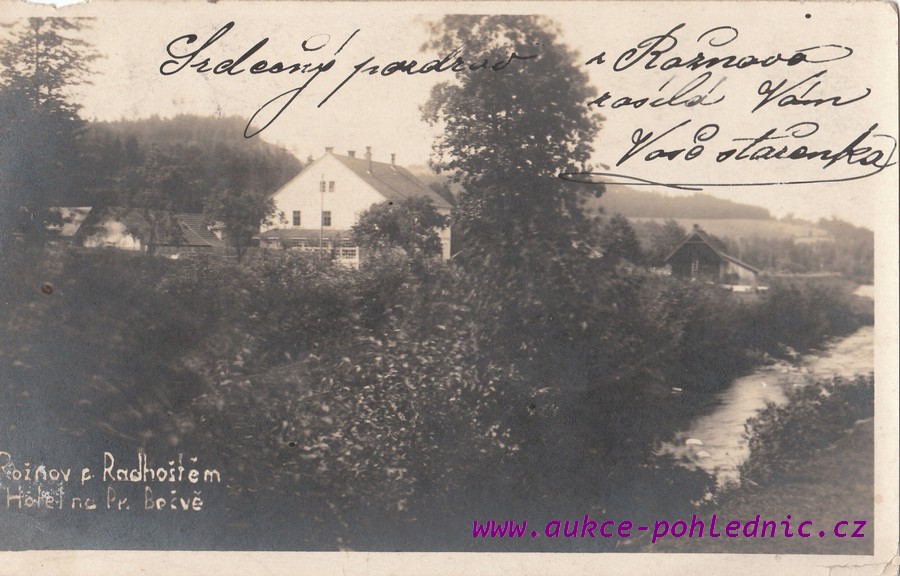 Srdečný pozdrav z Rožnova
zasílá Vám
Vaše stařenka
Rožnov p. Radhoštěm
Hôtel na Pr. Bečvě
www.aukce-pohlednic.cz